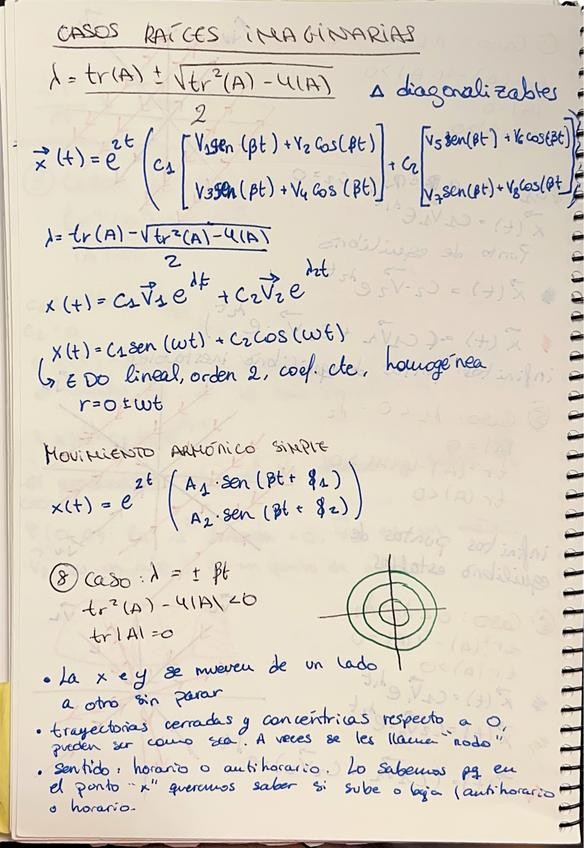 CASOS RAÍCES IMAGINARIAS
λ = (tr(A) ± √(tr²(A) - 4(A))) / 2
Δ diagonalizables
x⃗(t) = e^2t ( C1 [ V1 sen(βt) + V2 Cos(βt) ] + C2 [ V5 sen(βt) + V6 cos(βt) ] )
[ V3 sen(βt) + V4 Cos(βt) ] [ V7 sen(βt) + V8 cos(βt ]
λ = (tr(A) - √(tr²(A) - 4(A))) / 2
x(t) = C1 V⃗1 e^λt + C2 V⃗2 e^λ2t
x(t) = C1 sen(ωt) + C2 cos(ωt)
↳ EDO lineal, orden 2, coef. cte, homogénea
r = 0 ± ωt
MOVIMIENTO ARMÓNICO SIMPLE
x(t) = e^2t ( A1 · sen(βt + φ1) )
( A2 · sen(βt + φ2) )
⑧ Caso: λ = ± βt
tr²(A) - 4|A| < 0
tr|A| = 0
• La x e y se mueven de un lado
a otro sin parar
• trayectorias cerradas y concéntricas respecto a O,
pueden ser como sea. A veces se les llama "nodo"
• sentido: horario o antihorario. Lo sabemos pq en
el punto "x" queremos saber si sube o baja (antihorario
o horario.